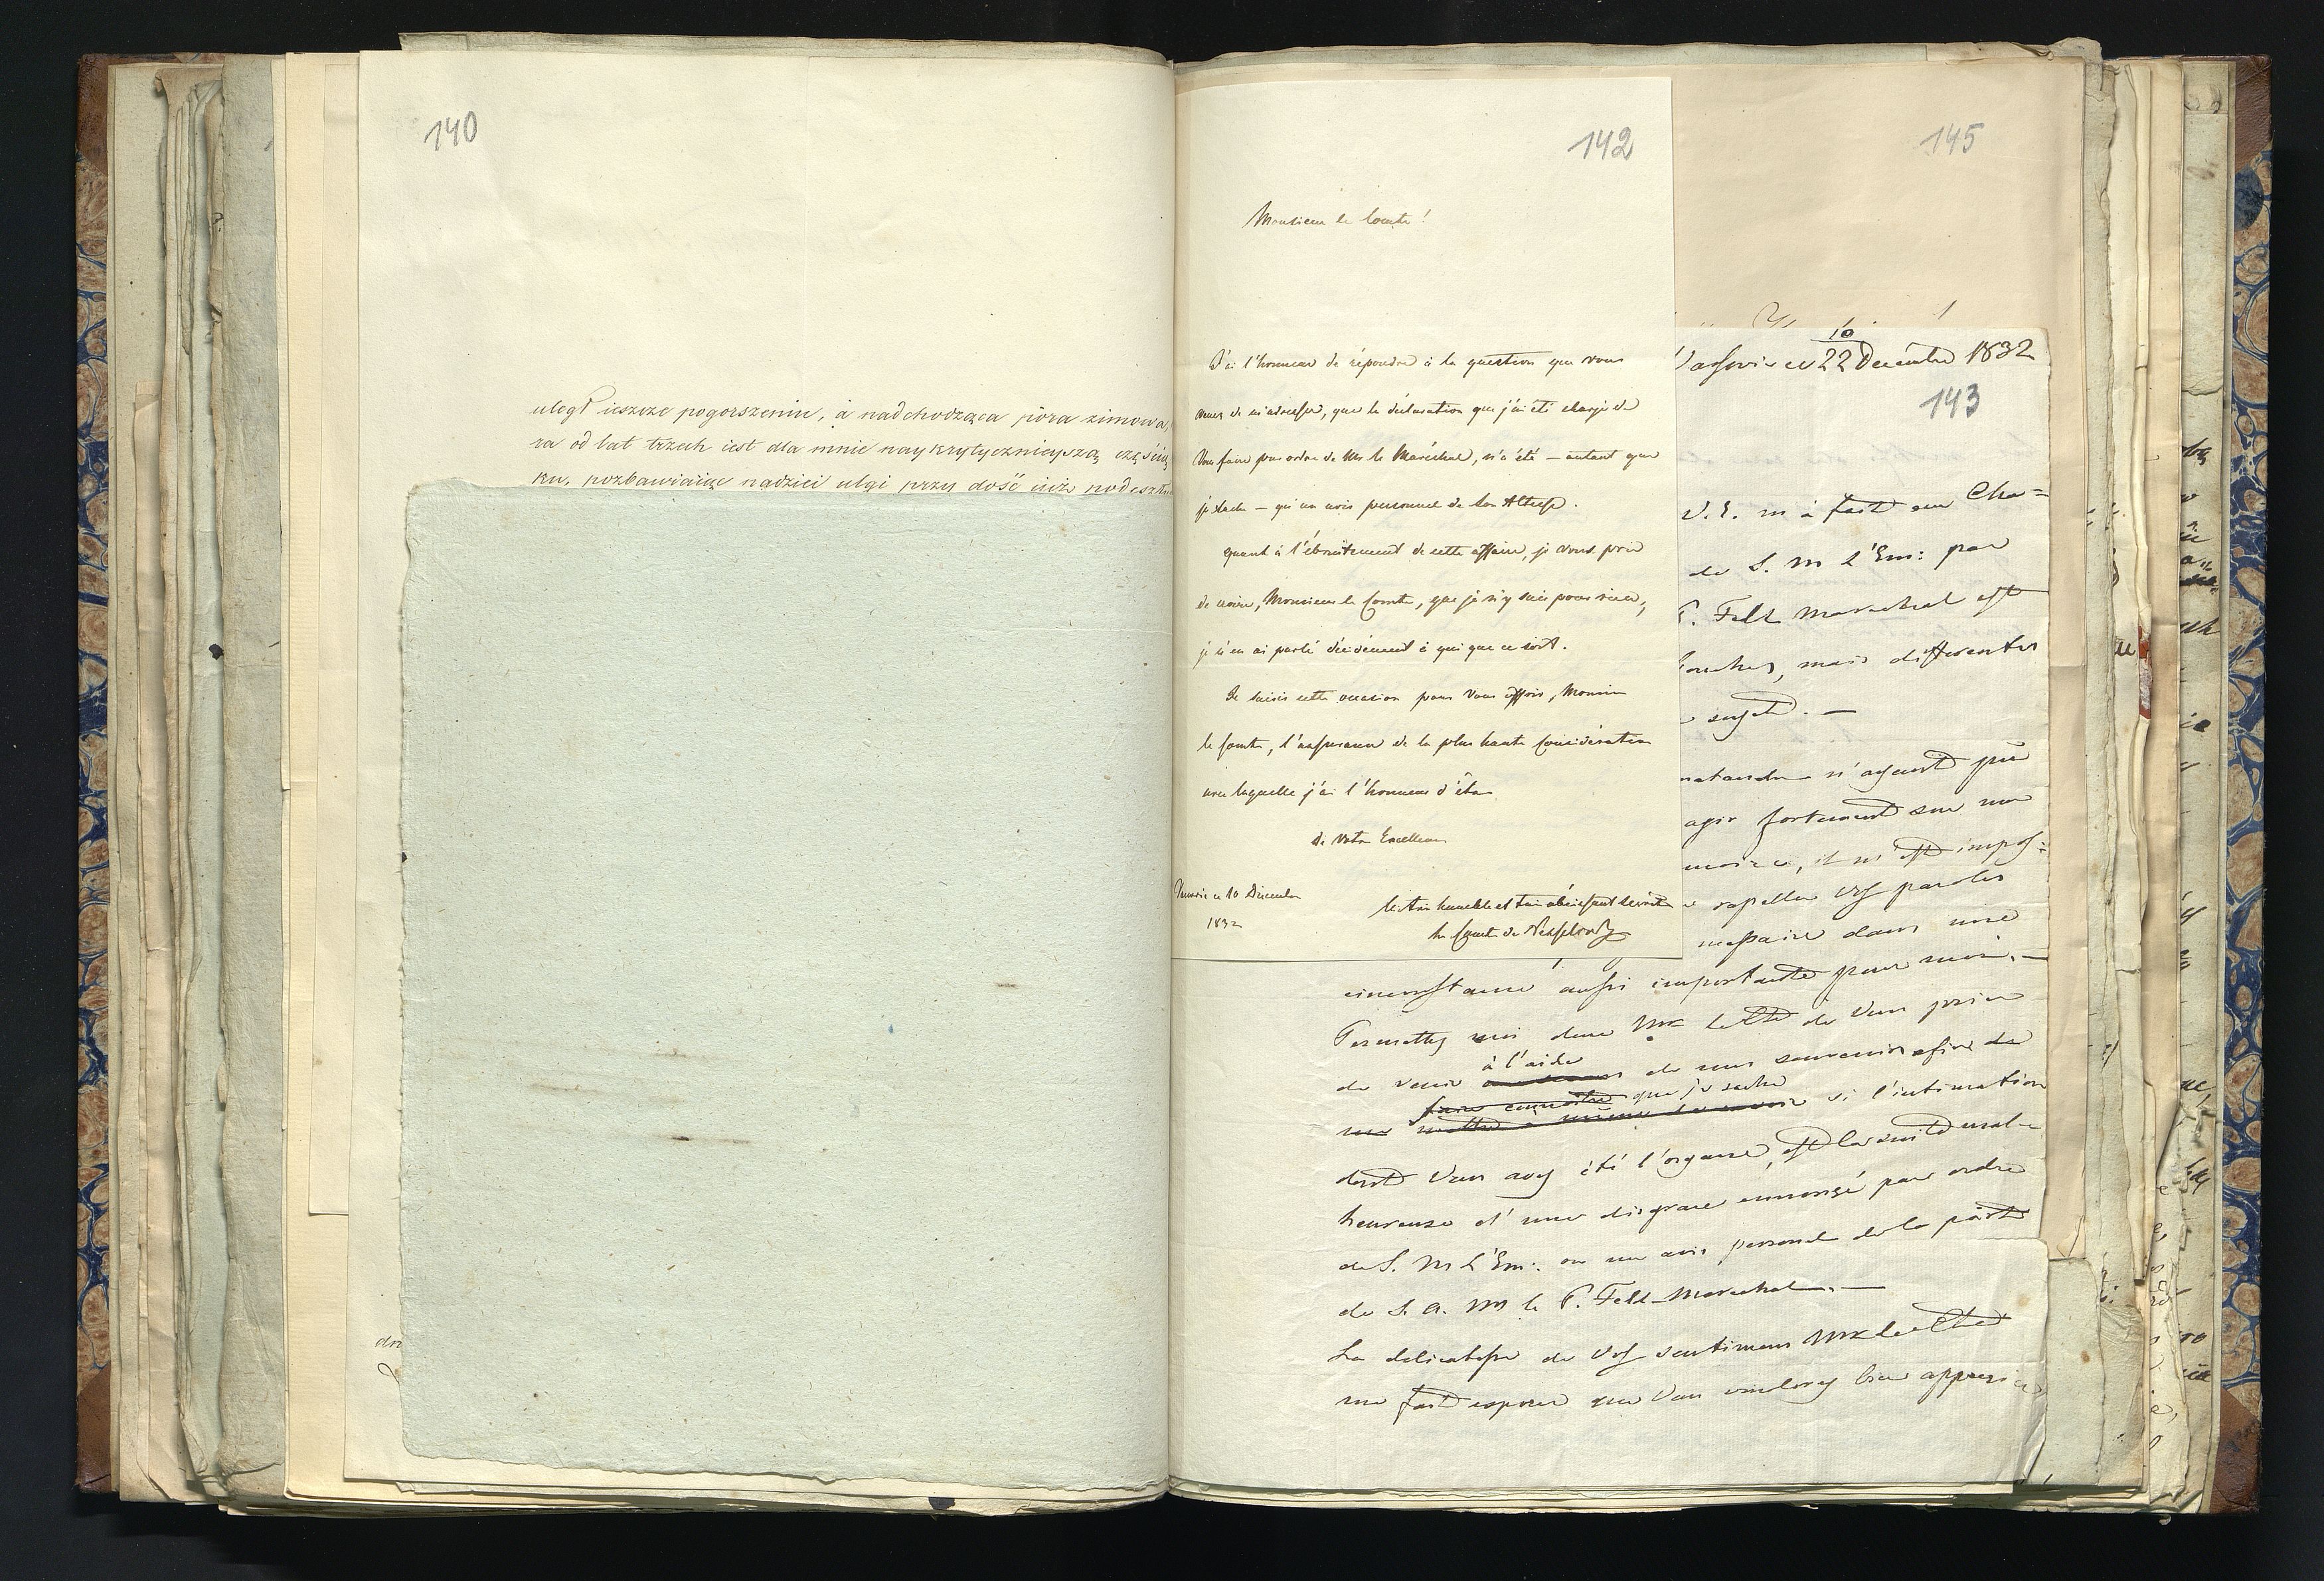 140
uległ ieszcze pogorszeniu, a nadchodząca pora zimowa,
ra od lat trzech iest dla mnie naykrytycznieyszą częścią
ku, pozbawiaiąc nadziei ulgi przy dość iuż podeszłym
142
Monsieur le Comte!
J'ai l'honneur de répondre à la question que vous
venez de m'adresser, que la déclaration que j'ai été chargé de
Vous faire par ordre de Mr le Maréchal, n'a été — autant que
je sache — qu'un avis personnel de Son Altesse.
Quant à l'ébruitement de cette affaire, je vous prie
de croire, Monsieur le Comte, que je n'y suis pour rien,
je n'en ai parlé décidément à qui que ce soit.
Je saisis cette occasion pour Vous offrir, Monsieur
le Comte, l'assurance de la plus haute considération
avec laquelle j'ai l'honneur d'être
de Votre Excellence
Varsovie ce 10 Décembre
1832
le très humble et très obéissant serviteur
le Comte de Nesselrode
145
10
Varsovie ce 22 Decembre 1832
143
V. E. m'a fait au Cha=
de S. M l'Em: par
P. Feld Marechal est
bouches, mais differentes
sujet. —
n'ayant pu
agir fortement sur ma
memoire, il m'est impos=
rapeller vos paroles
necessaire dans une
circonstance aussi importante pour moi. —
Permettez moi donc Mr le Cte de Vous prier
à l'aide
de venir de mes souvenirs afin de
faire connoitre que je sache
me mettre à même de savoir si l'intimation
dont Vous avez été l'organe, est la suite mal-
heureuse d'une disgrace annoncé par ordre
de S. M l'Em: ou un avis personel de la part
de S. A. M le P. Feld-Marechal. —
La delicatesse de Vos sentimens Mr le Cte
me fait esperer que Vous voudrez bien apprecier